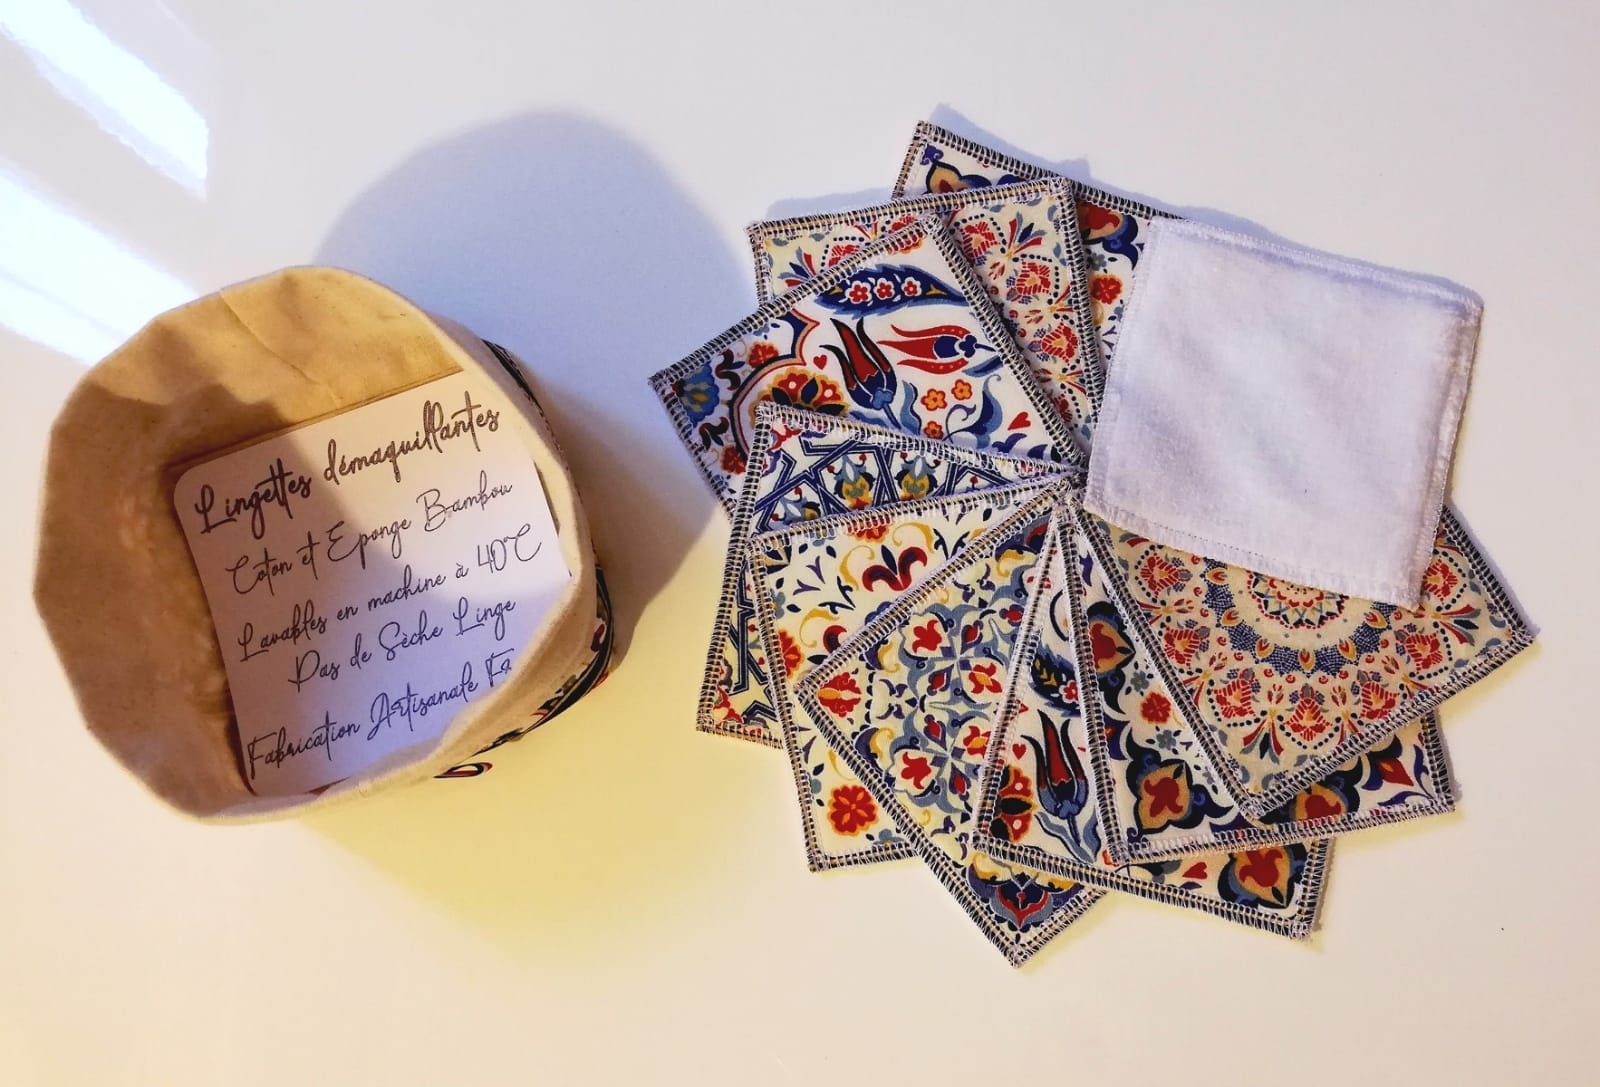 Lingettes démaquillantes
Coton et Eponge Bambou
Lavables en machine à 40°C
Pas de Sèche Linge
Fabrication Artisanale